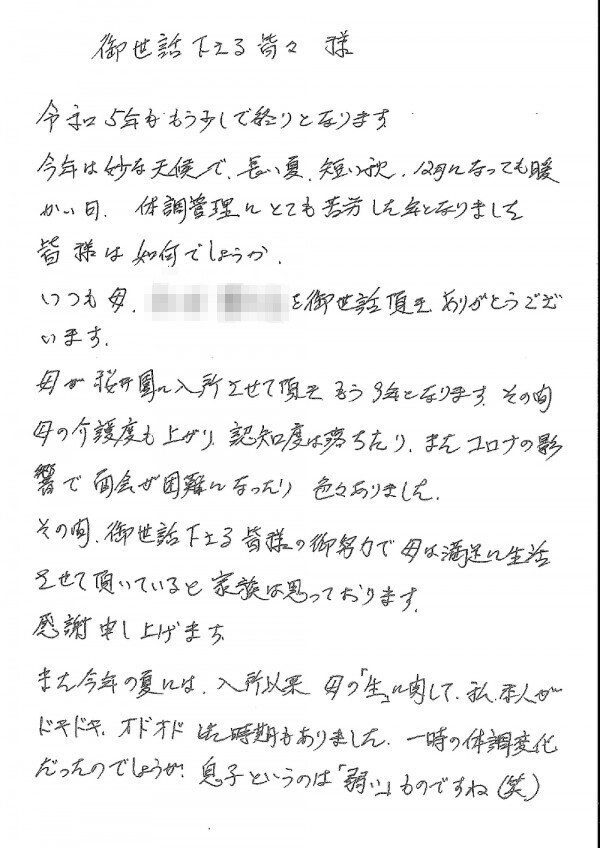 御世話下さる皆々様
令和5年ももう少しで終りとなります
今年は妙な天候で、長い夏、短い秋、12月になっても暖
かい日、体調管理にとても苦労した年となりました
皆様は如何でしょうか、
いつも母、を御世話頂き、ありがとうござ
います。
母が桜井園に入所させて頂き、もう3年となります。その間
母の介護度も上がり、認知度は落ちたり、またコロナの影
響で面会が困難になったり色々ありました。
その間、御世話下さる皆様の御努力で母は満足に生活
させて頂いていると家族は思っております。
感謝申し上げます。
また今年の夏には、入所以来母の「生」に関して、私、本人が
ドキドキ、オドオドした時期もありました。一時の体調変化
だったのでしょうが、息子というのは「弱い」ものですね(笑)